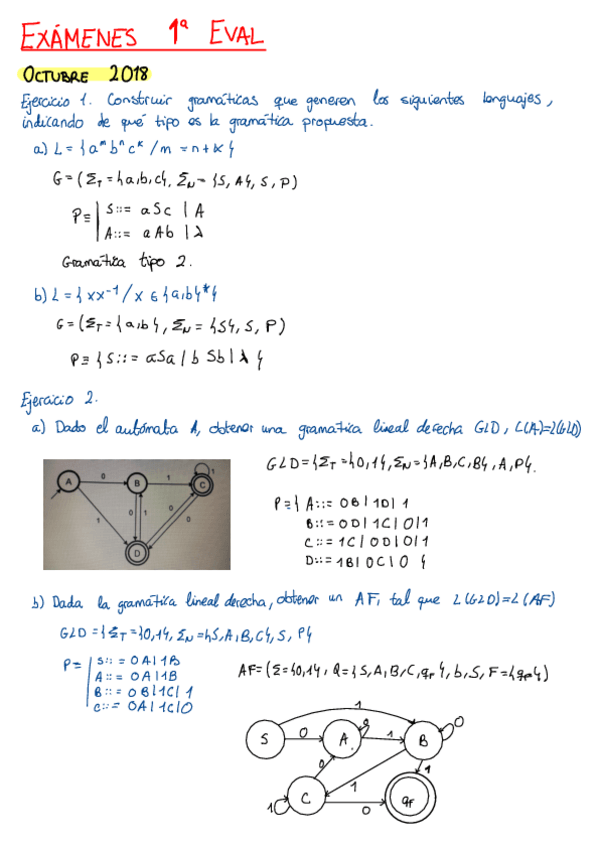 EXÁMENES 1ª EVAL
OCTUBRE 2018
Ejercicio 1. Construir gramáticas que generen los siguientes lenguajes,
indicando de qué tipo es la gramática propuesta.
a) L = { a^m b^n c^k / m = n + k }
G = ( Σ_T = {a,b,c}, Σ_N = {S, A}, S, P)
P ≡ | S ::= aSc | A
A ::= aAb | λ
Gramática tipo 2.
b) L = { xx^-1 / x ∈ {a,b}* }
G = ( Σ_T = {a,b}, Σ_N = {S}, S, P)
P ≡ { S ::= aSa | bSb | λ }
Ejercicio 2.
a) Dado el autómata A, obtener una gramática lineal derecha GLD, L(A)=L(GLD)
GLD = {Σ_T = {0,1}, Σ_N = {A,B,C,B}, A, P}.
A 0 B 1 C 1
1 0 1 0 0
D
P ≡ { A ::= 0B | 1D | 1
B ::= 0D | 1C | 0 | 1
C ::= 1C | 0D | 0 | 1
D ::= 1B | 0C | 0 }
b) Dada la gramática lineal derecha, obtener un AF, tal que L(GLD)=L(AF)
GLD = {Σ_T = {0,1}, Σ_N = {S,A,B,C}, S, P}
P ≡ | S ::= 0A | 1B
A ::= 0A | 1B
B ::= 0B | 1C | 1
C ::= 0A | 1C | 0
AF = (Σ = {0,1}, Q = {S,A,B,C,q_f}, b, S, F = {q_f})
1
S 0 A 0 1 B 0
0 1 1
1 C 0 q_f